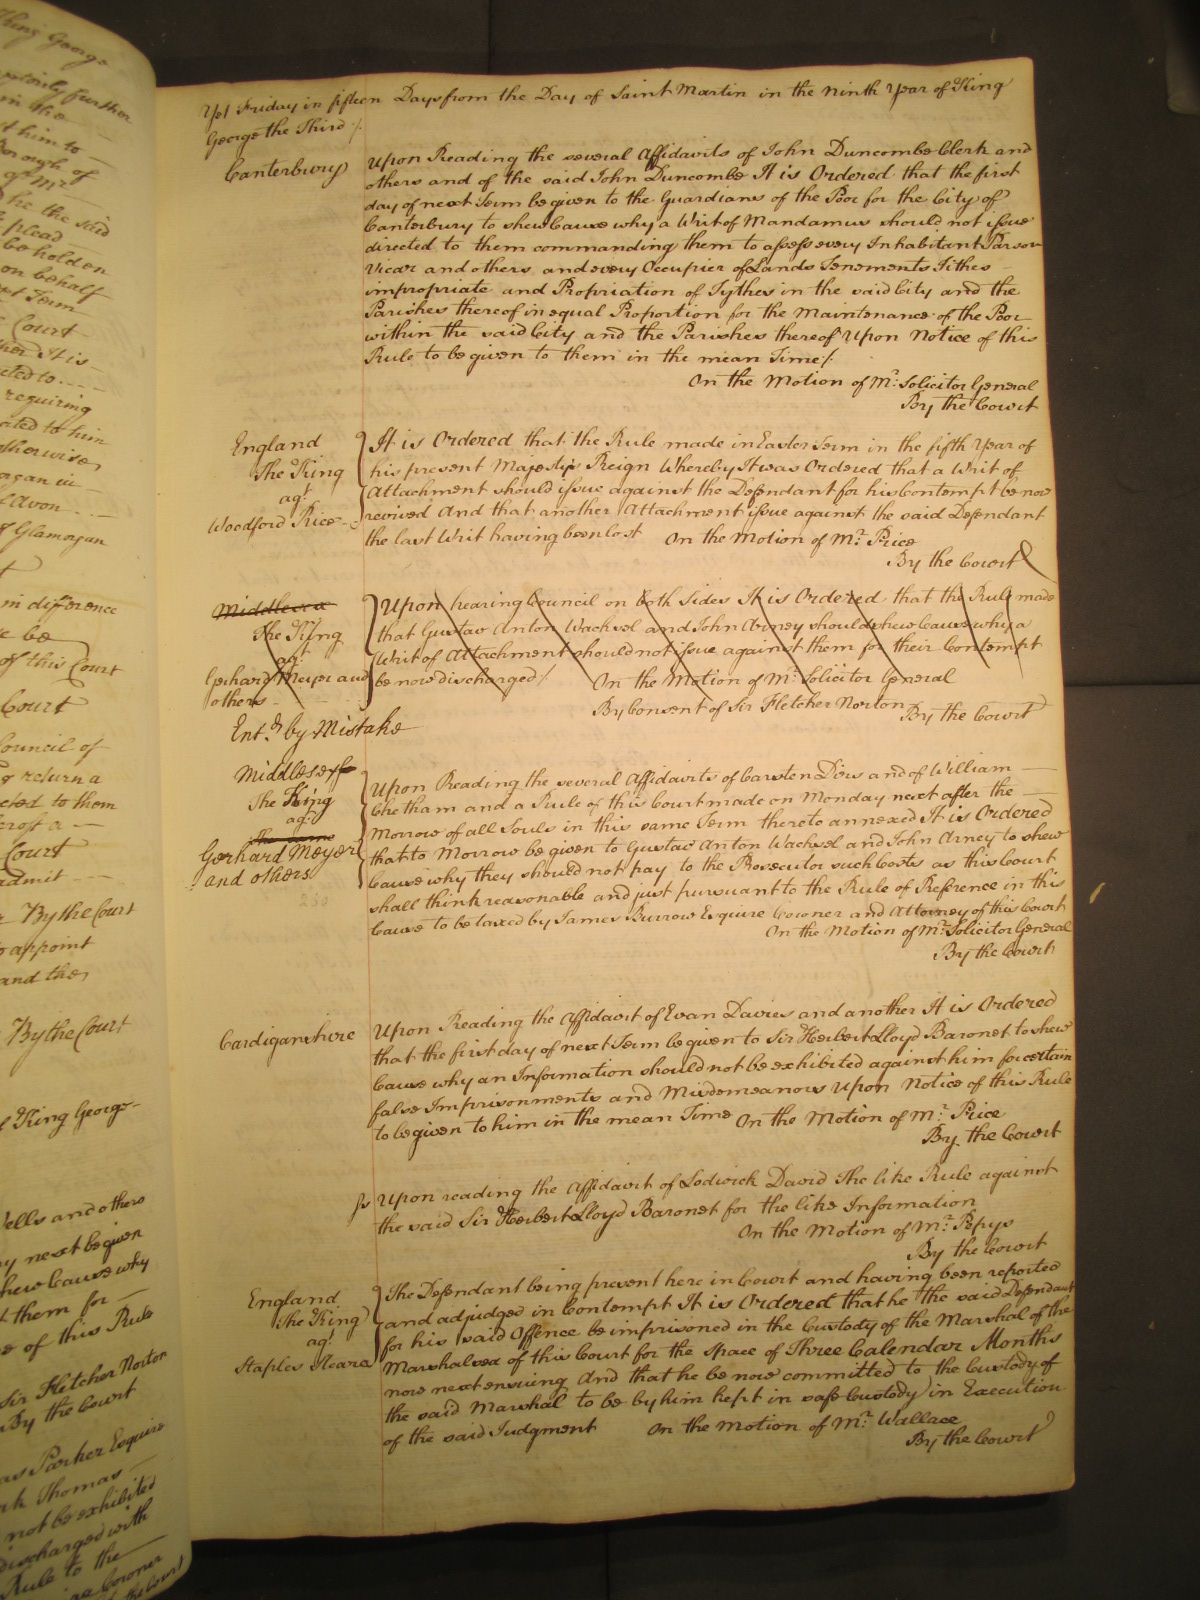 Yet Friday in fifteen Days from the Day of Saint Martin in the Ninth Year of King
George the Third /.
Canterbury
Upon Reading the several Affidavits of John Duncombe Clerk and
others and of the said John Duncombe It is Ordered that the first
day of next Term be given to the Guardians of the Poor for the City of
Canterbury to shew Cause why a Writ of Mandamus should not issue
directed to them commanding them to assess every Inhabitant Parson
Vicar and others and every Occupier of Lands Tenements Tithes
impropriate and Propriation of Tythes in the said City and the
Parishes thereof in equal Proportion for the Maintenance of the Poor
within the said City and the Parishes thereof Upon Notice of this
Rule to be given to them in the mean Time /.
On the Motion of Mr. Solicitor General
By the Court
England
The King
agt.
Woodford Rice
It is Ordered that the Rule made in Easter Term in the fifth Year of
his present Majestys Reign Whereby It was Ordered that a Writ of
Attachment should issue against the Defendant for his Contempt be now
revived And that another Attachment issue against the said Defendant
the last Writ having been lost On the Motion of Mr. Price
By the Court
Middlesex
The King
agt.
Gerhard Meyer and
others
Upon hearing Council on both sides It is Ordered that the Rule made
that Gustav Anton Wachsel and John Arney should shew Cause why a
Writ of Attachment should not issue against them for their Contempt
be now discharged / On the Motion of Mr. Solicitor General
By Consent of Sir Fletcher Norton By the Court
Ent.d by Mistake
Middlesex
The King
agt.
The same
Gerhard Meyer
and others
Upon Reading the several Affidavits of Carsten Dirs and of William
Chetham and a Rule of this Court made on Monday next after the
Morrow of all Souls in this same Term thereto annexed It is Ordered
that to Morrow be given to Gustav Anton Wachsel and John Arney to shew
Cause why they should not pay to the Prosecutor such Costs as this Court
shall think reasonable and just pursuant to the Rule of Reference in this
Cause to be taxed by James Burrow Esquire Coroner and Attorney of this Court
On the Motion of Mr. Solicitor General
By the Court
Cardiganshire
Upon Reading the Affidavit of Evan Davies and another It is Ordered
that the first day of next Term be given to Sir Herbert Lloyd Baronet to shew
Cause why an Information should not be exhibited against him for certain
false Imprisonments and Misdemeanors Upon Notice of this Rule
to be given to him in the mean Time On the Motion of Mr. Price
By the Court
Upon reading the Affidavit of Lodwick David The like Rule against
the said Sir Herbert Lloyd Baronet for the like Information
On the Motion of Mr. Pepys
By the Court
England
The King
agt.
Staples Steare
The Defendant being present here in Court and having been reported
and adjudged in Contempt It is Ordered that he the said Defendant
for his said Offence be imprisoned in the Custody of the Marshal of the
Marshalsea of this Court for the space of Three Calendar Months
now next ensuing And that he be now committed to the Custody of
the said Marshal to be by him kept in safe Custody in Execution
of the said Judgment On the Motion of Mr. Wallace
By the Court